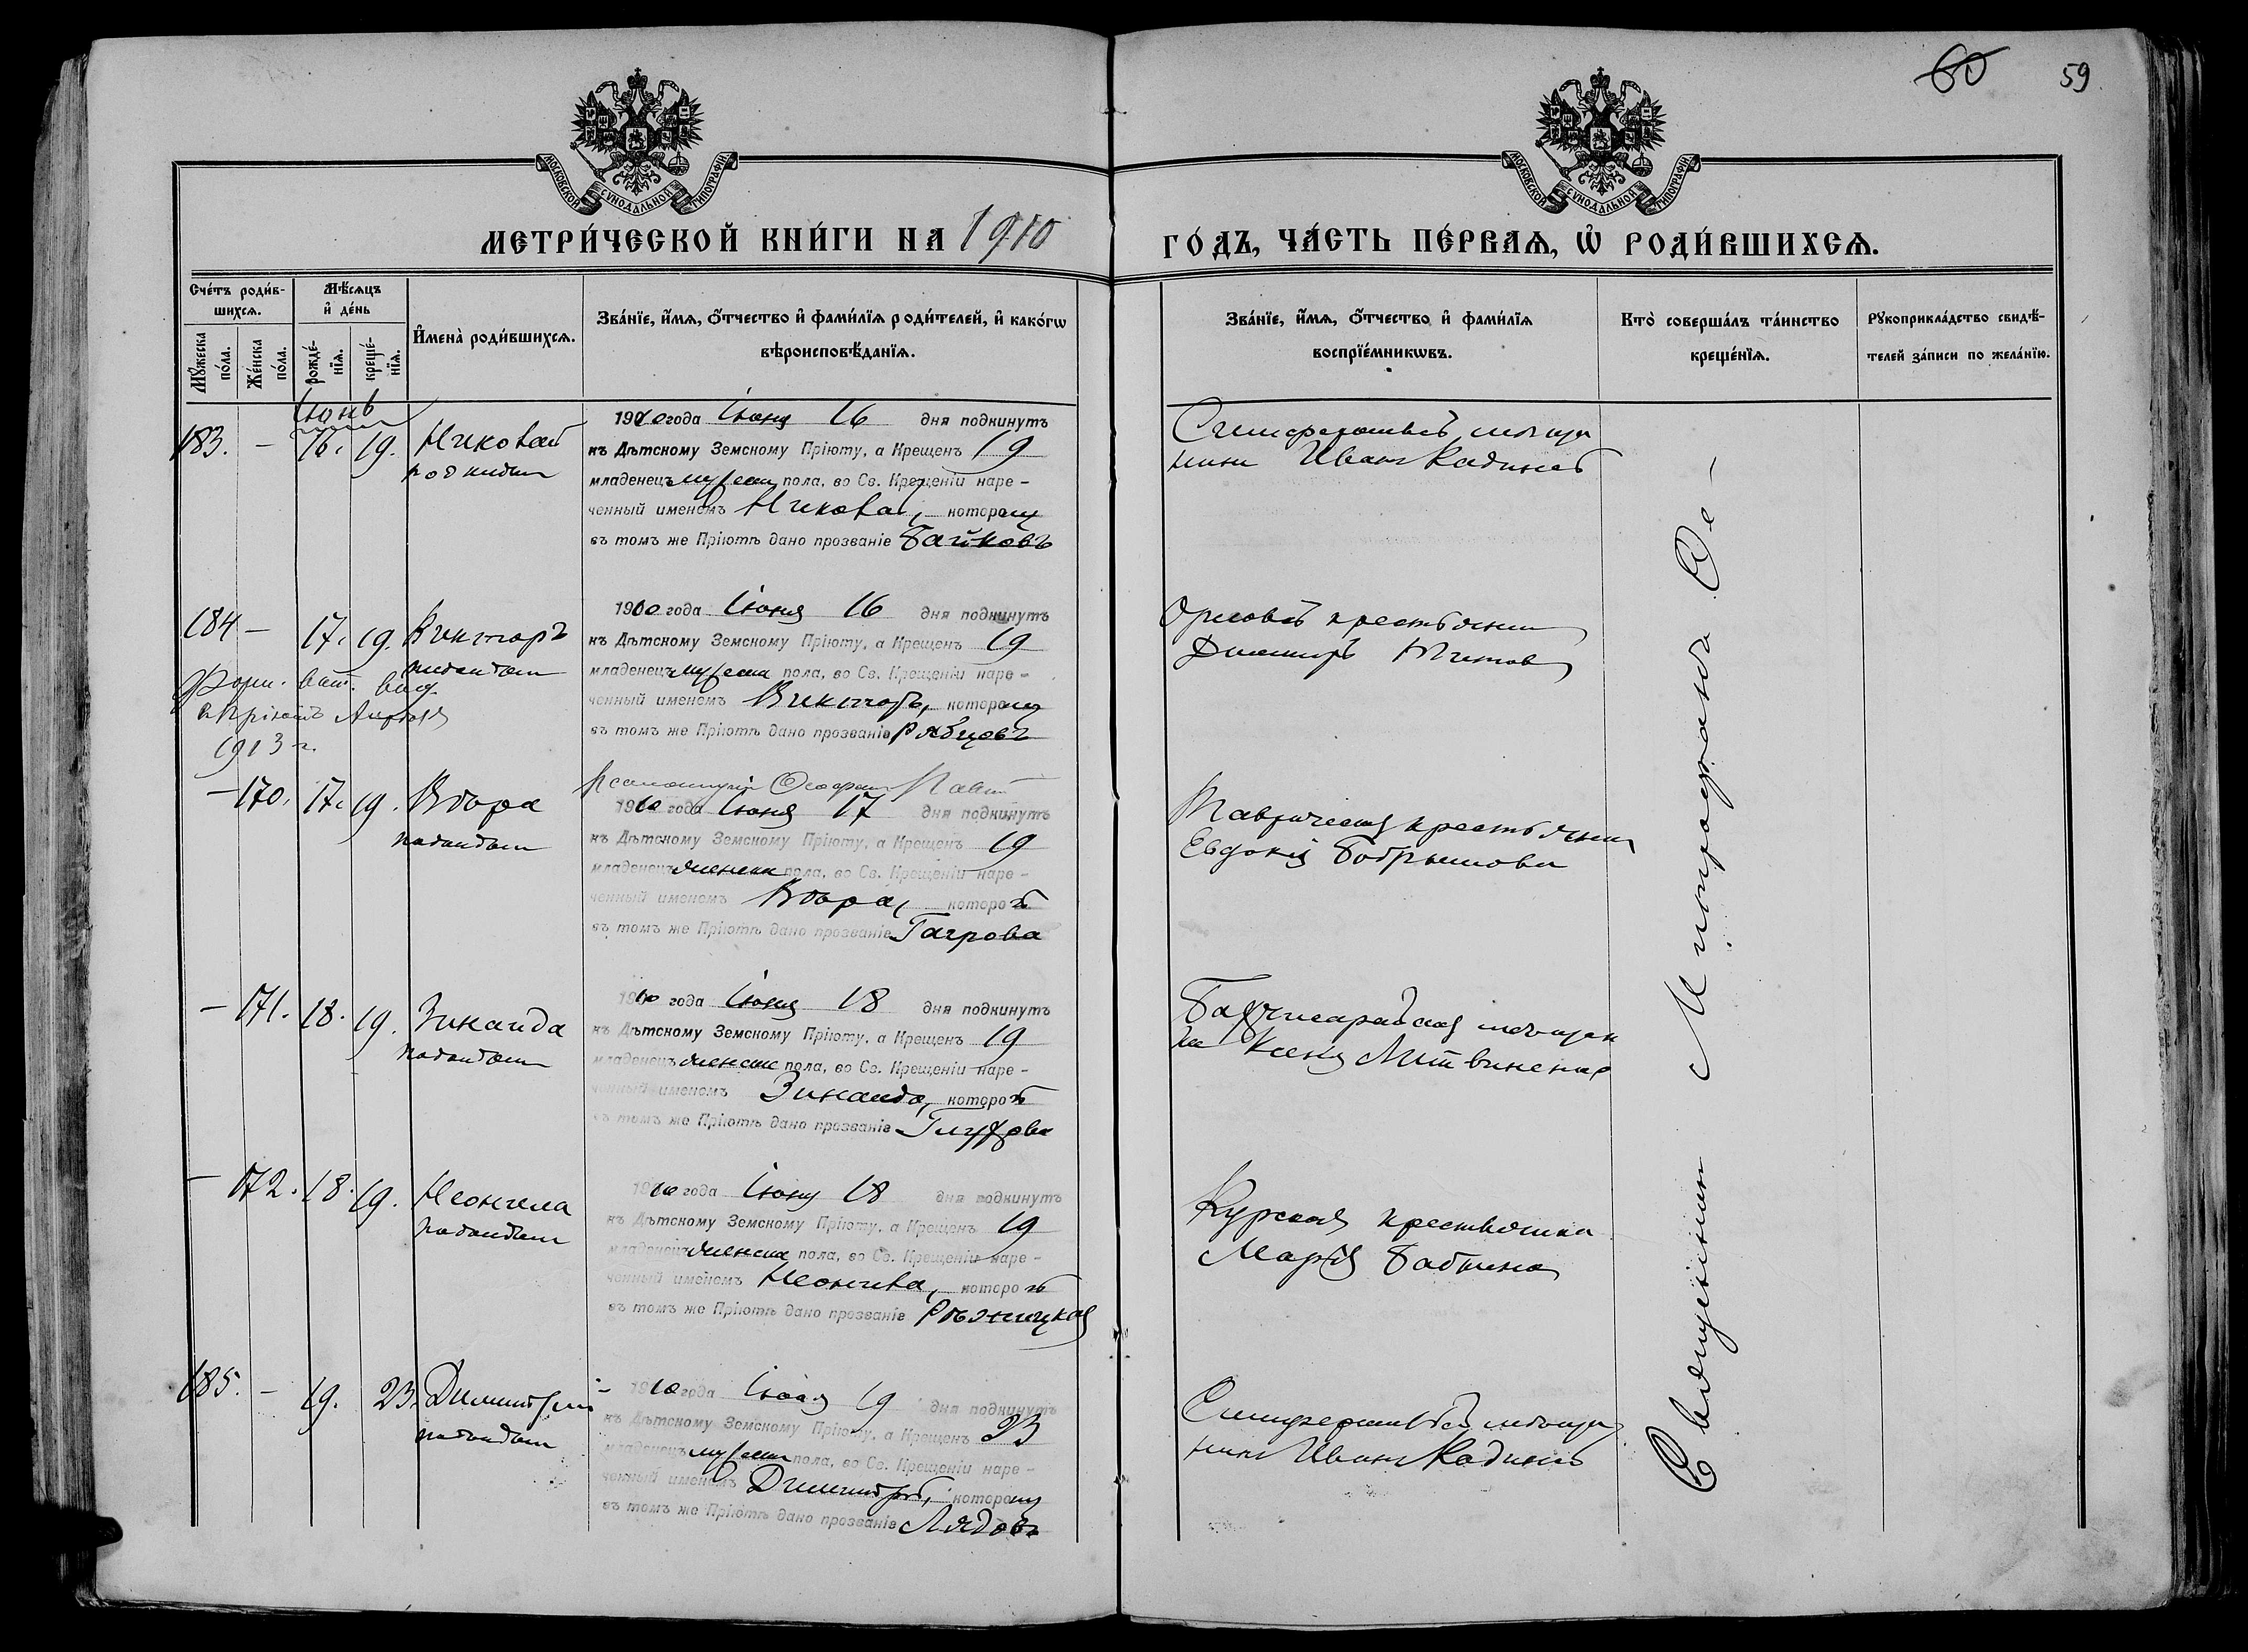 60 59
МОСКОВСКОЙ СѴНОДАЛЬНОЙ ТИПОГРАФІИ
МОСКОВСКОЙ СѴНОДАЛЬНОЙ ТИПОГРАФІИ
МЕТРИ́ЧЕСКОЙ КНИ́ГИ НА 1910
ГО́ДЪ, ЧА́СТЬ ПЕ́РВАѦ, Ѽ РОДИ́ВШИХСѦ.
Сче́тъ роди́вшихсѧ.
Мꙋ́жеска по́ла.
Же́нска по́ла.
Мѣ́сѧцъ и҆ де́нь
рожде́нїѧ.
креще́нїѧ.
И҆мена̀ роди́вшихсѧ.
Зва́нїе, и҆́мѧ, ѻ҆́тчество и҆ фами́лїѧ роди́телей, и҆ како́гѡ
вѣроисповѣ́данїѧ.
Зва́нїе, и҆́мѧ, ѻ҆́тчество и҆ фами́лїѧ
воспрїе́мникѡвъ.
Кто̀ соверша́лъ та́инство
креще́нїѧ.
Рꙋкоприкла́дство свидѣ́-
телей за́писи по жела́нїю.
Іюнь
183. – 16. 19. Николай
подкидыш
1910 года Іюня 16 дня подкинутъ
къ Дѣтскому Земскому Пріюту, а Крещенъ 19
младенецъ мужеска пола, во Св. Крещеніи наре-
ченный именемъ Николай, которому
въ томъ же Пріютѣ дано прозваніе Байковъ
Иванъ Кадинъ
184 – 17. 19. Викторъ
1910 года Іюня 16 дня подкинутъ
къ Дѣтскому Земскому Пріюту, а Крещенъ 19
младенецъ мужеска пола, во Св. Крещеніи наре-
ченный именемъ Викторъ, которому
въ томъ же Пріютѣ дано прозваніе Рябцовъ
1913 г.
– 170. 17. 19. Вѣра
1910 года Іюня 17 дня подкинутъ
къ Дѣтскому Земскому Пріюту, а Крещенъ 19
младенецъ женска пола, во Св. Крещеніи наре-
ченный именемъ Вѣра, которой
въ томъ же Пріютѣ дано прозваніе Гагрова
Таврическая крестьянка
Евдокія
– 171. 18. 19. Зинаида
1910 года Іюня 18 дня подкинутъ
къ Дѣтскому Земскому Пріюту, а Крещенъ 19
младенецъ женска пола, во Св. Крещеніи наре-
ченный именемъ Зинаида, которой
въ томъ же Пріютѣ дано прозваніе Глухова
Бахчисарайская мѣщан
ка Ксенія Литвиненко
– 172. 18. 19. Неонила
1910 года Іюня 18 дня подкинутъ
къ Дѣтскому Земскому Пріюту, а Крещенъ 19
младенецъ женска пола, во Св. Крещеніи наре-
ченный именемъ Неонила, которой
въ томъ же Пріютѣ дано прозваніе Рѣзницкая
Курская крестьянка
Марія Бабкина
185. – 19. 23. Димитрій
1910 года Іюня 19 дня подкинутъ
къ Дѣтскому Земскому Пріюту, а Крещенъ 23
младенецъ мужеска пола, во Св. Крещеніи наре-
ченный именемъ Димитрій, которому
въ томъ же Пріютѣ дано прозваніе Лядовъ
Иванъ Кадинъ
Священникъ Митрофанъ